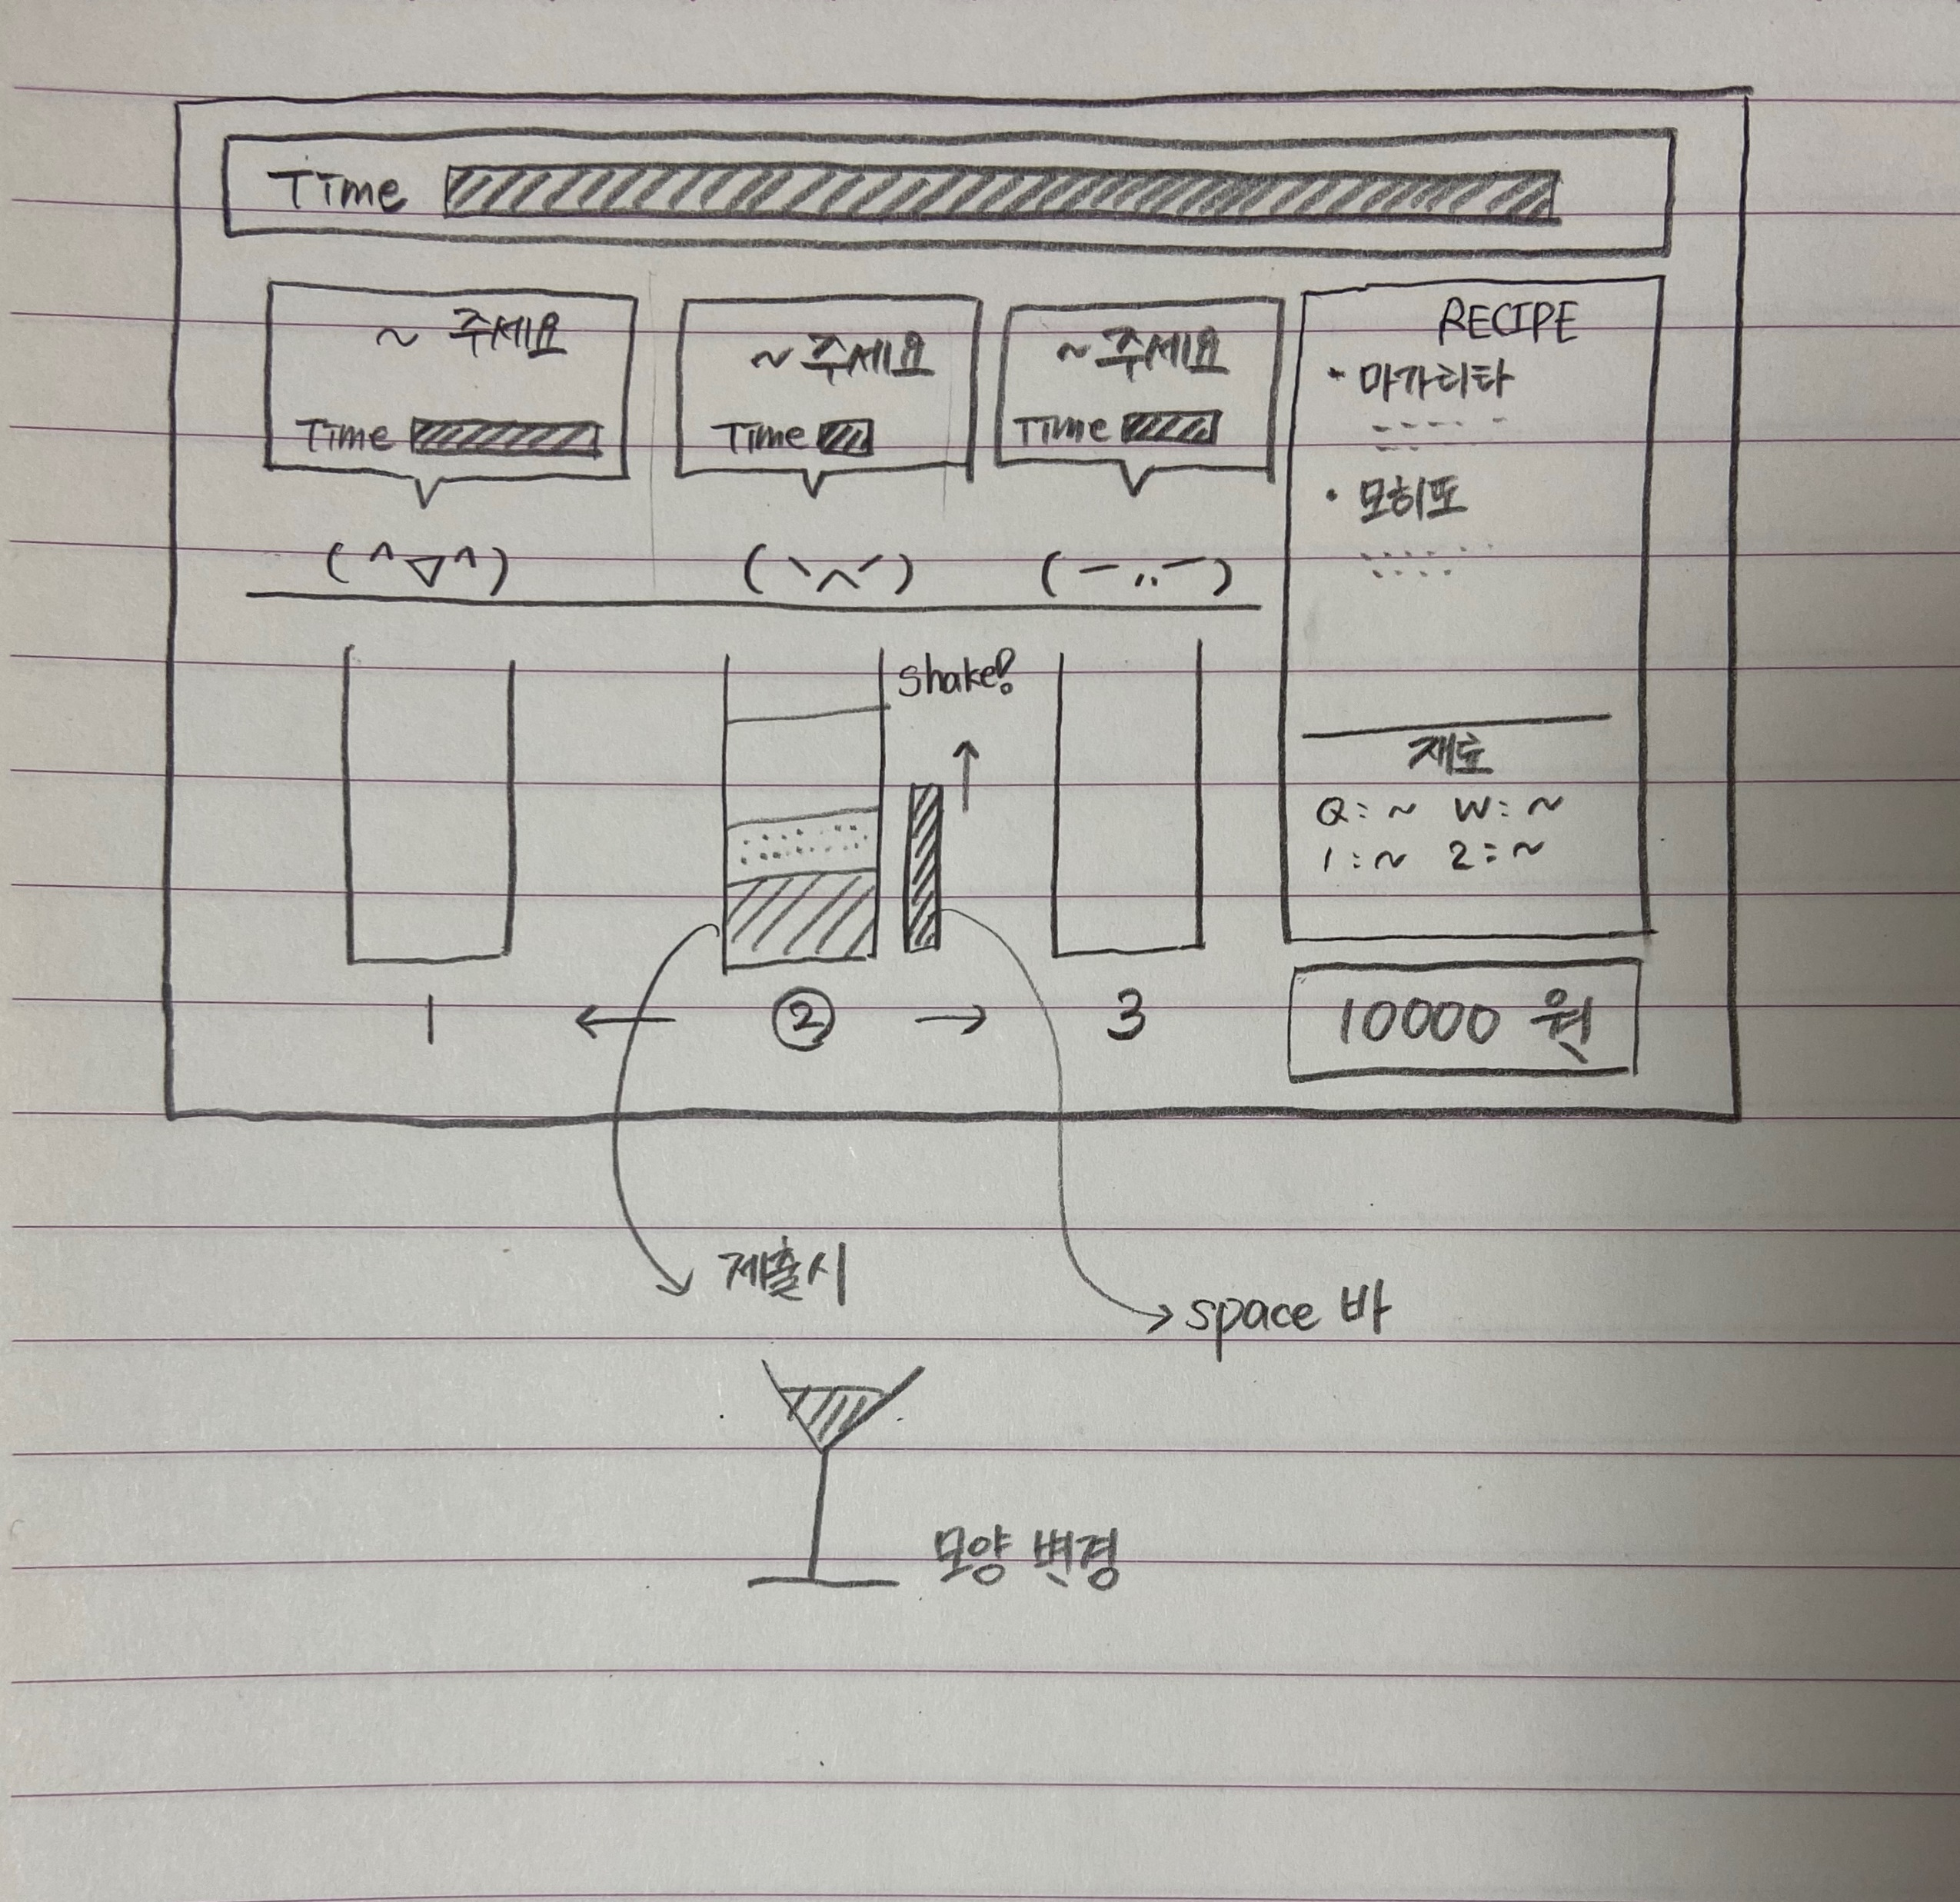 Time
~ 주세요
Time
~ 주세요
Time
~ 주세요
Time
(^▽^)
(`^´)
(ー..ー)
RECIPE
• 마가리타
• 모히또
재료
Q:~ W:~
1:~ 2:~
shake!
1 ← ② → 3
10000 원
제출시
space 바
모양 변경